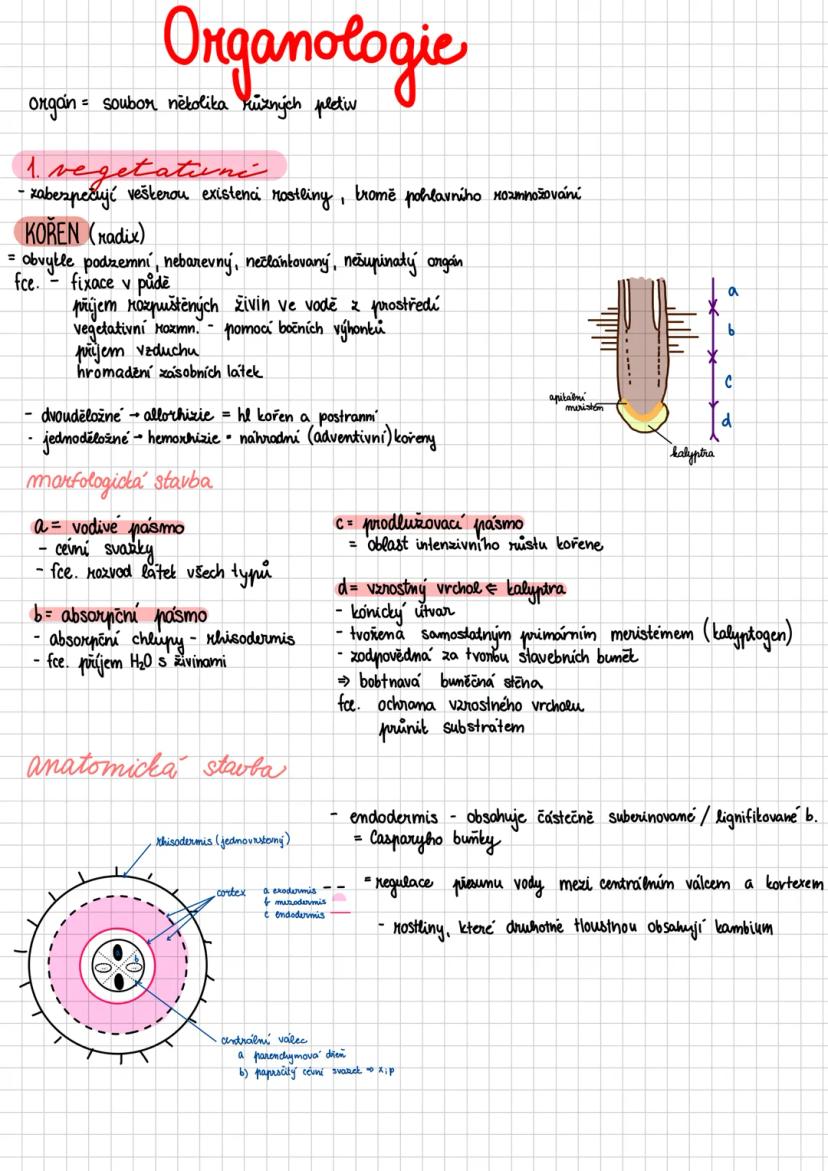 Organologie
orgán = soubor několika různých pletiv
1. vegetativní
- zabezpečují veškerou existenci rostliny, kromě pohlavního rozmnožování
KOŘEN (radix)
= obvykle podzemní, nebarevný, nečlánkovaný, nešupinatý orgán
fce. - fixace v půdě
příjem rozpuštěných živin ve vodě z prostředí
vegetativní rozmn. - pomocí bočních výhonků
příjem vzduchu
hromadění zásobních látek
- dvouděložné → allorhizie = hl kořen a postranní
- jednoděložné → homorhizie = náhradní (adventivní) kořeny
a
b
c
d
apikální
meristém
kalyptra
morfologická stavba
a = vodivé pásmo
- cévní svazky
- fce. rozvod látek všech typů
b = absorpční pásmo
- absorpční chlupy - rhisodermis
- fce. příjem H₂O s živinami
c = prodlužovací pásmo
= oblast intenzivního růstu kořene
d = vzrostný vrchol ← kalyptra
- kónický útvar
- tvořena samostatným primárním meristémem (kalyptogen)
- zodpovědná za tvorbu stavebních buněk
⇒ bobtnavá buněčná stěna
fce. ochrana vzrostného vrcholu
průnik substrátem
anatomická stavba
rhisodermis (jednovrstevný)
cortex
a exodermis
b mezodermis
c endodermis
b
centrální válec
a parenchymová dřeň
b) paprsčitý cévní svazek ⇒ x;p
- endodermis - obsahuje částečně suberinované / lignifikované b.
= Caspary­ho buňky
= regulace přesunu vody mezi centrálním válcem a kortexem
- rostliny, které druhotně tloustnou obsahují kambium